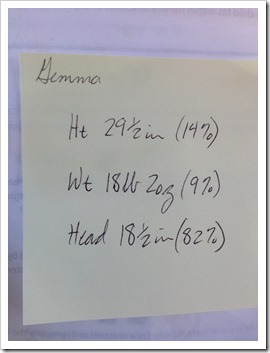 Gemma
Ht 29½in (14%)
Wt 18lb 2oz (9%)
Head 18½in (82%)